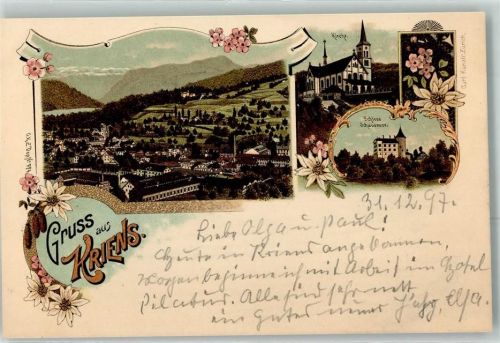 Kirche.
Schloss
Schauensee.
Gruss aus
KRIENS.
31.12.97.
Liebe Olga u. Paul!
Heute in Kriens angekommen,
morgen beginne ich mit Arbeit im Hotel
Pilatus. Alle sind sehr nett
ein gutes neues Jahr, Elsa.